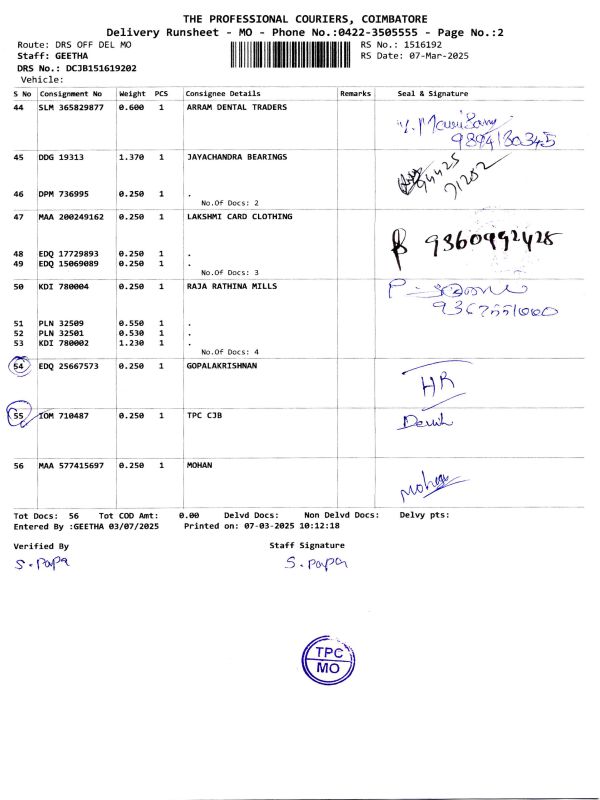 THE PROFESSIONAL COURIERS, COIMBATORE
Delivery Runsheet - MO - Phone No.:0422-3505555 - Page No.:2
Route: DRS OFF DEL MO RS No.: 1516192
Staff: GEETHA RS Date: 07-Mar-2025
DRS No.: DCJB151619202
Vehicle:
S No Consignment No Weight PCS Consignee Details Remarks Seal & Signature
44 SLM 365829877 0.600 1 ARRAM DENTAL TRADERS
9894130345
45 DDG 19313 1.370 1 JAYACHANDRA BEARINGS
94425
71252
46 DPM 736995 0.250 1 .
No.Of Docs: 2
47 MAA 200249162 0.250 1 LAKSHMI CARD CLOTHING
9360992428
48 EDQ 17729893 0.250 1 .
49 EDQ 15069089 0.250 1 .
No.Of Docs: 3
50 KDI 780004 0.250 1 RAJA RATHINA MILLS
9367551000
51 PLN 32509 0.550 1 .
52 PLN 32501 0.530 1 .
53 KDI 780002 1.230 1 .
No.Of Docs: 4
54 EDQ 25667573 0.250 1 GOPALAKRISHNAN
HR
55 IOM 710487 0.250 1 TPC CJB
56 MAA 577415697 0.250 1 MOHAN
Mohan
Tot Docs: 56 Tot COD Amt: 0.00 Delvd Docs: Non Delvd Docs: Delvy pts:
Entered By :GEETHA 03/07/2025 Printed on: 07-03-2025 10:12:18
Verified By Staff Signature
S. Papa S. Papa
TPC
MO